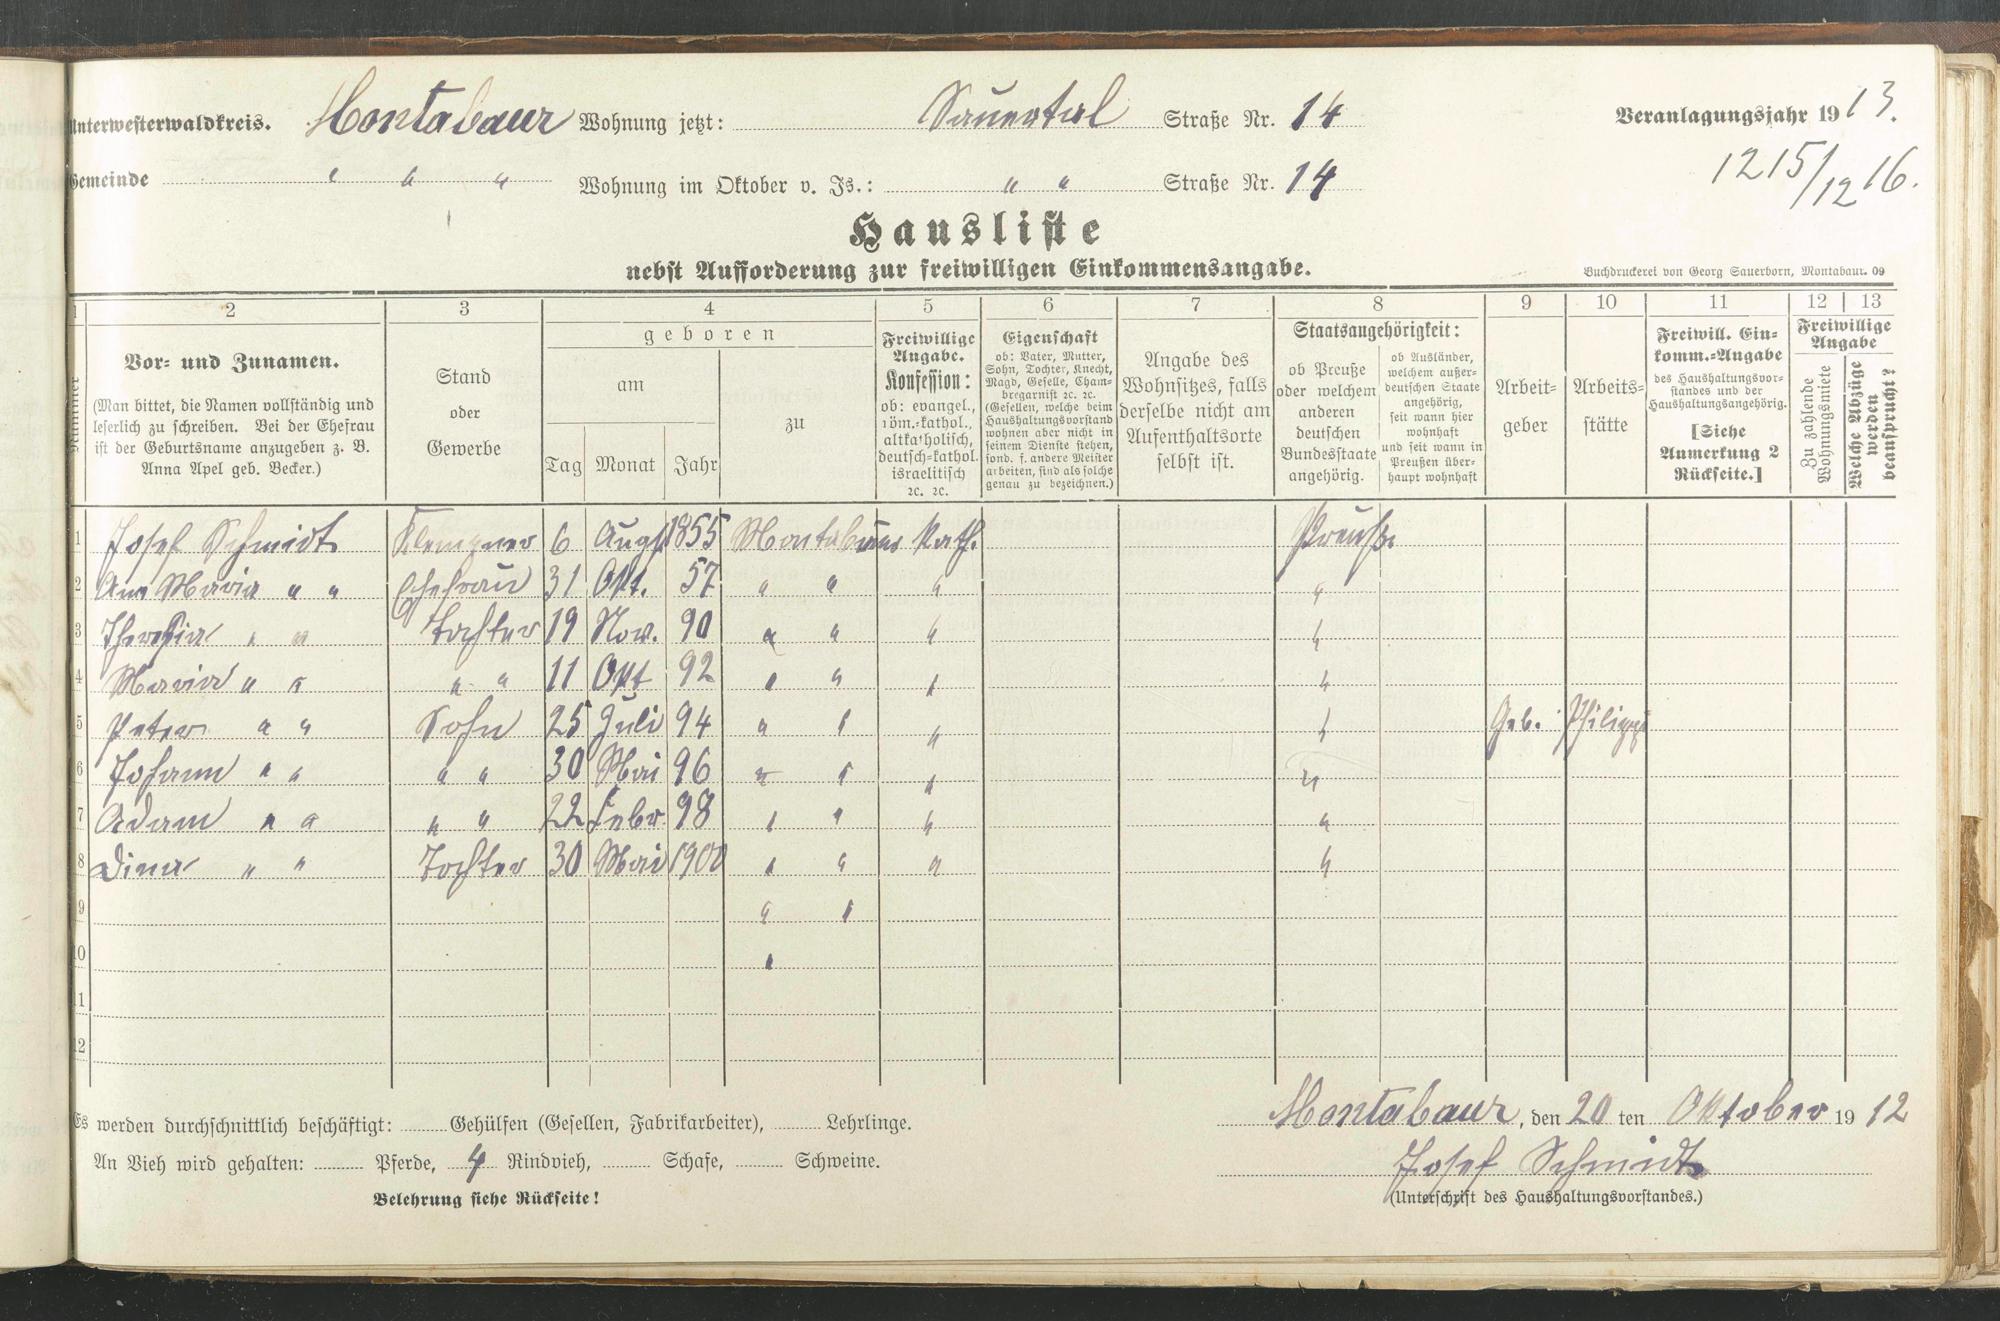 Unterwesterwaldkreis. Montabaur Wohnung jetzt: Sauertal Straße Nr. 14 Veranlagungsjahr 1913.
Gemeinde " " " Wohnung im Oktober v. Js.: " " Straße Nr. 14 1215/12 16.
Hausliste
nebst Aufforderung zur freiwilligen Einkommensangabe.
Buchdruckerei von Georg Sauerborn, Montabaur. 09
1 2 3 4 5 6 7 8 9 10 11 12 13
Nummer
Vor- und Zunamen.
(Man bittet, die Namen vollständig und
leserlich zu schreiben. Bei der Ehefrau
ist der Geburtsname anzugeben z. B.
Anna Apel geb. Becker.)
Stand
oder
Gewerbe
geboren
am
Tag Monat Jahr
zu
Freiwillige
Angabe.
Konfession:
ob: evangel.,
röm.-kathol.,
altkatholisch,
deutsch-kathol.
israelitisch
2c. 2c.
Eigenschaft
ob: Vater, Mutter,
Sohn, Tochter, Knecht,
Magd, Geselle, Cham-
bregarnist 2c. 2c.
(Gesellen, welche beim
Haushaltungsvorstand
wohnen aber nicht in
seinem Dienste stehen,
sond. f. andere Meister
arbeiten, sind als solche
genau zu bezeichnen.)
Angabe des
Wohnsitzes, falls
derselbe nicht am
Aufenthaltsorte
selbst ist.
Staatsangehörigkeit:
ob Preuße
oder welchem
anderen
deutschen
Bundesstaate
angehörig.
ob Ausländer,
welchem außer-
deutschen Staate
angehörig,
seit wann hier
wohnhaft
und seit wann in
Preußen über-
haupt wohnhaft
Arbeit-
geber
Arbeits-
stätte
Freiwill. Ein-
komm.-Angabe
des Haushaltungsvor-
standes und der
Haushaltungsangehörig.
[Siehe
Anmerkung 2
Rückseite.]
Freiwillige
Angabe
Zu zahlende
Wohnungsmiete
Welche Abzüge
werden
beansprucht?
1 Josef Schmidt Klempner 6 Augst 1855 Montabaur Kath. Preuße
2 Ana Maria " " Ehefrau 31 Okt. 57 " " " "
3 Theresia " " Tochter 19 Nov. 90 " " " "
4 Maria " " " " 11 Okt 92 " " " "
5 Peter " " Sohn 25 Juli 94 " " " " Geb. Philippi
6 Johann " " " " 30 Mai 96 " " " "
7 Adam " " " " 22 Febr 98 " " " "
8 Dina " " Tochter 30 Mai 1900 " " " "
9 " "
10 "
11
12
Montabaur, den 20 ten Oktober 1912
Es werden durchschnittlich beschäftigt: Gehülfen (Gesellen, Fabrikarbeiter), Lehrlinge.
An Vieh wird gehalten: Pferde, 4 Rindvieh, Schafe, Schweine.
Josef Schmidt
Belehrung siehe Rückseite!
(Unterschrift des Haushaltungsvorstandes.)